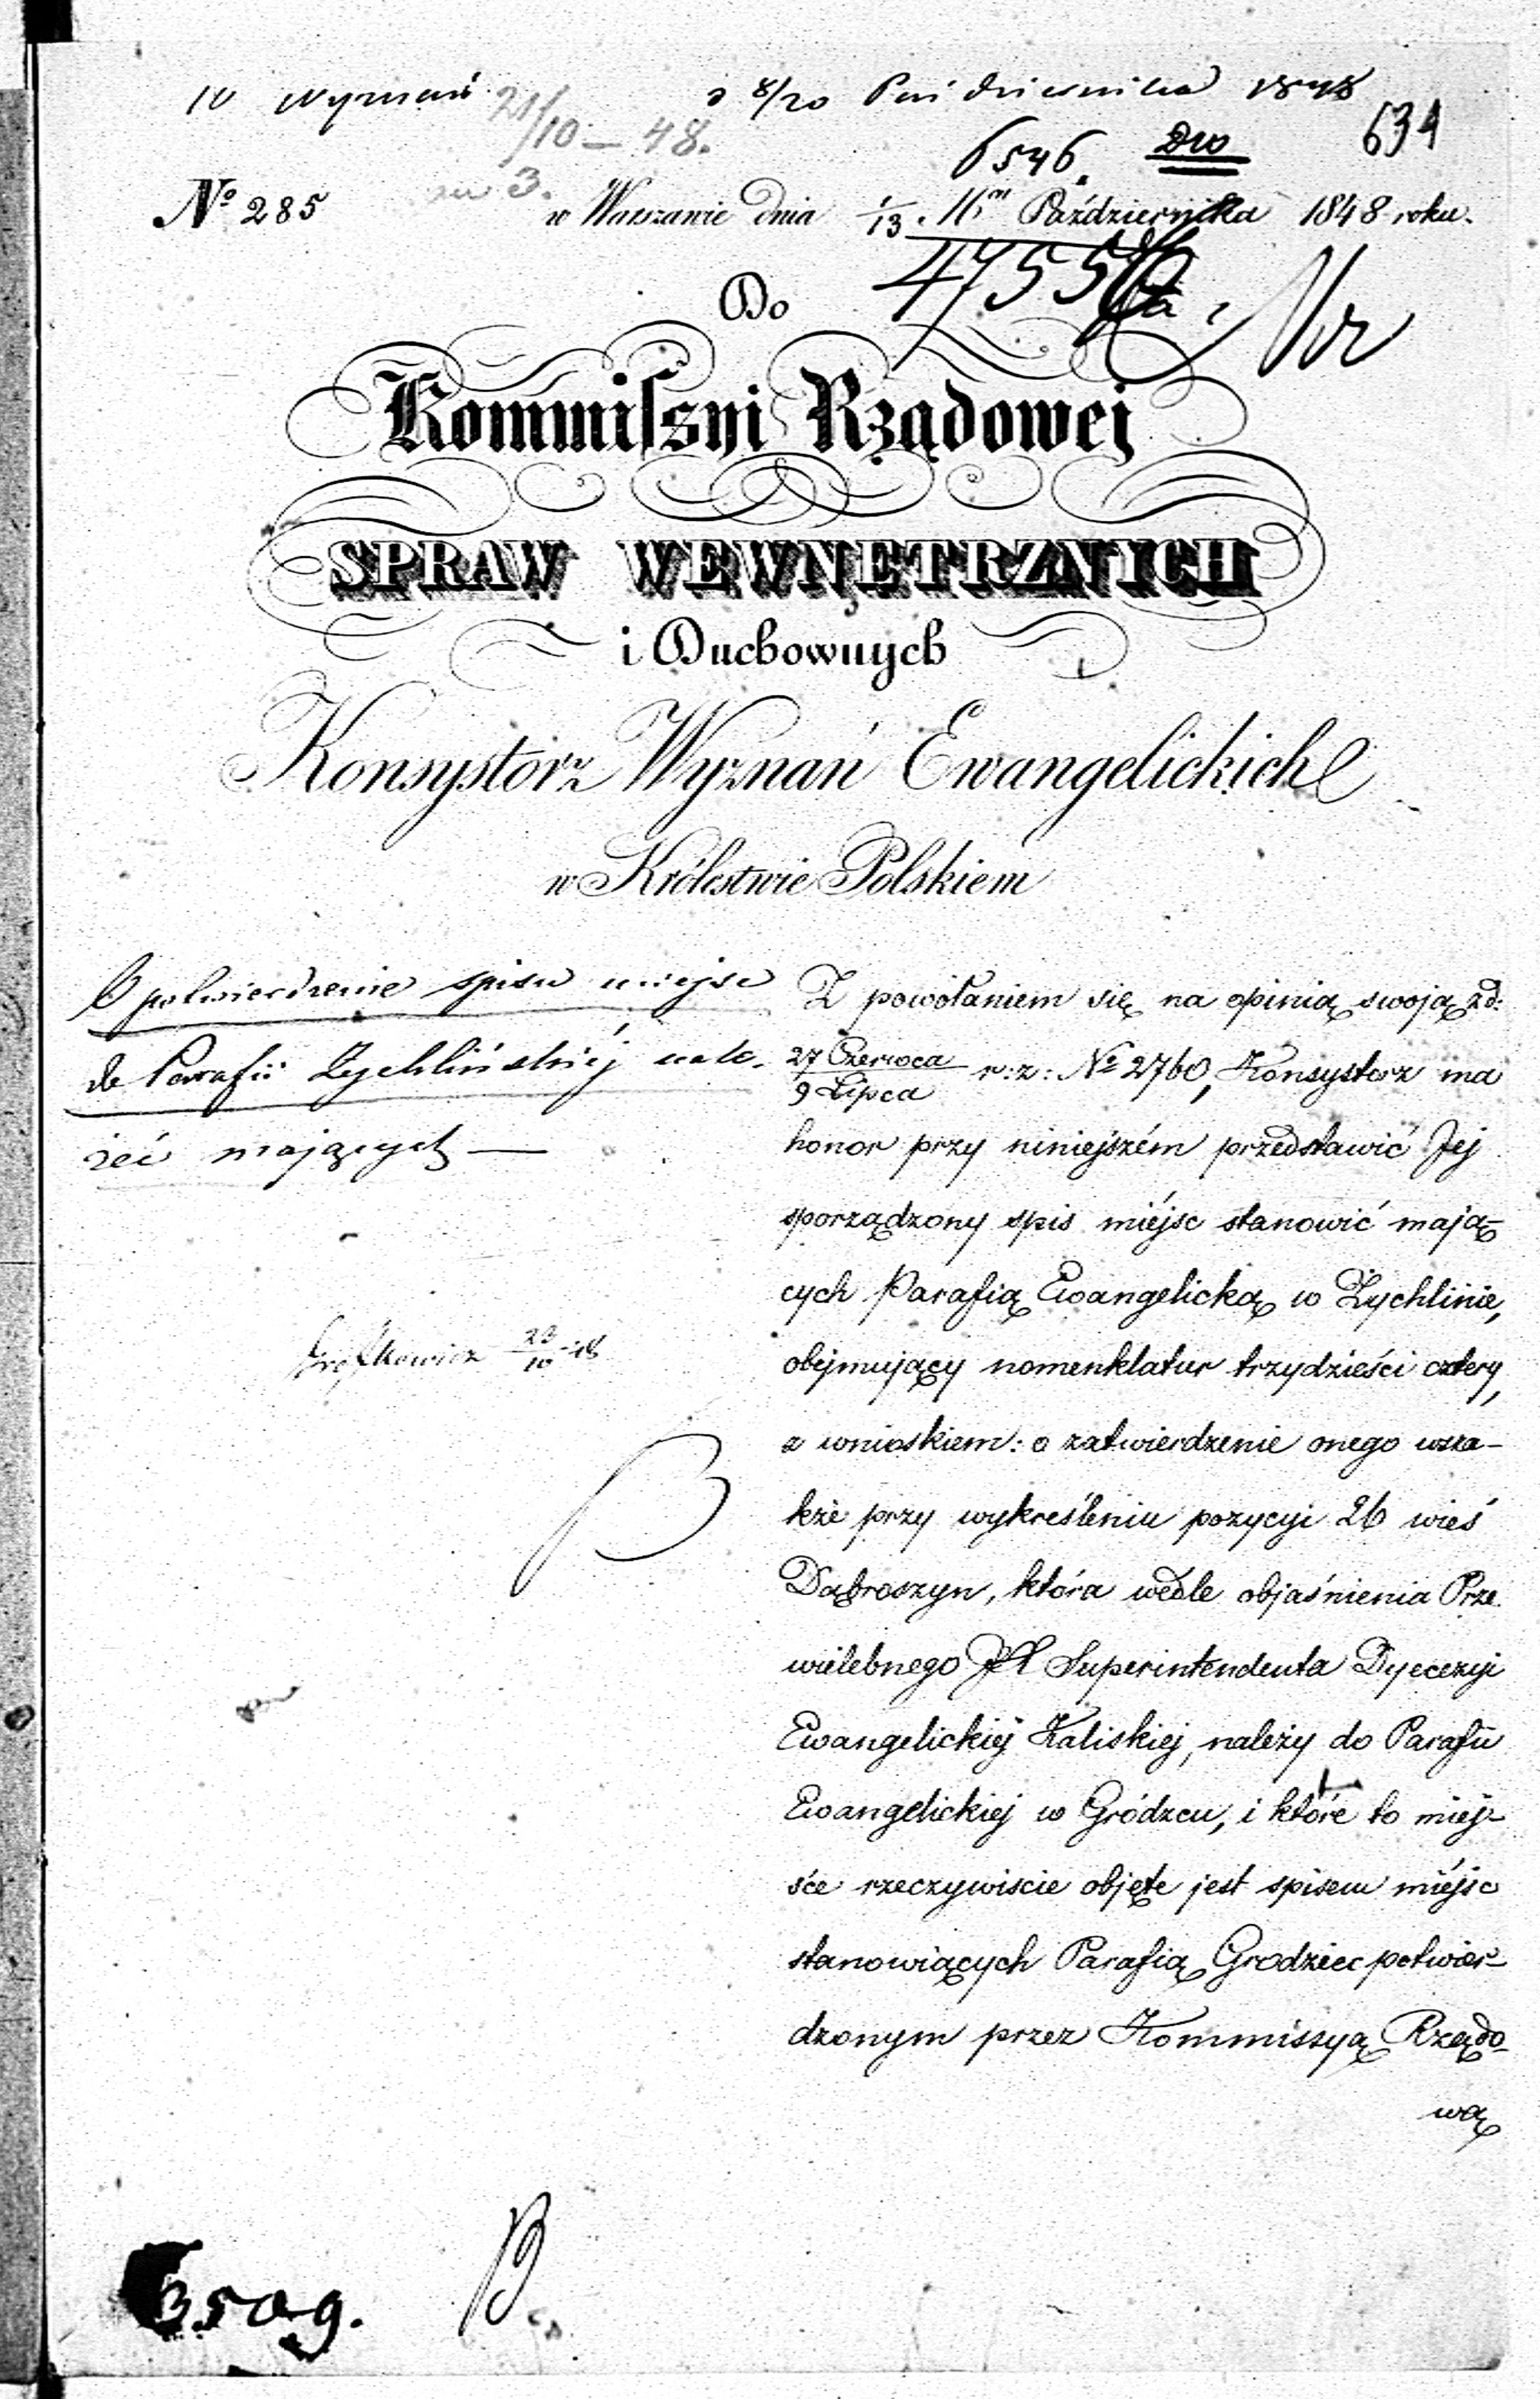 W Wyznań d 8/20 Października 1848
21/10 – 48.
6546. 634
3.
№ 285 w Warszawie dnia 1/13 Października 1848 roku.
4755
Do
Kommissyi Rządowej
SPRAW WEWNĘTRZNYCH
i Duchownych
Konsystorz Wyznań Ewangelickich
w Królestwie Polskiem
O potwierdzenie spisu miejsc
do Parafii Żychlińskiéj nale-
żeć mających —
Z powołaniem się na opinią swoją z d:
27 Czerwca / 9 Lipca r: z: № 2760, Konsystorz ma
honor przy niniejszém przedstawić Jej
sporządzony spis miéjsc stanowić mają-
cych Parafią Ewangelicką w Żychlinie,
obejmujący nomenklatur trzydzieści cztery,
z wnioskiem: o zatwierdzenie onego wsza-
kże przy wykreśleniu pozycyi 26 wieś
Dąbroszyn, która wedle objaśnienia Prze
wielebnego JX Superintendenta Dyecezyi
Ewangelickiéj Kaliskiej, należy do Parafii
Ewangelickiej w Gródzcu, i które to miej-
sce rzeczywiscie objęte jest spisem miéjsc
stanowiących Parafią Grodziec potwier-
dzonym przez Kommissyą Rządo-
wą
23/10 48